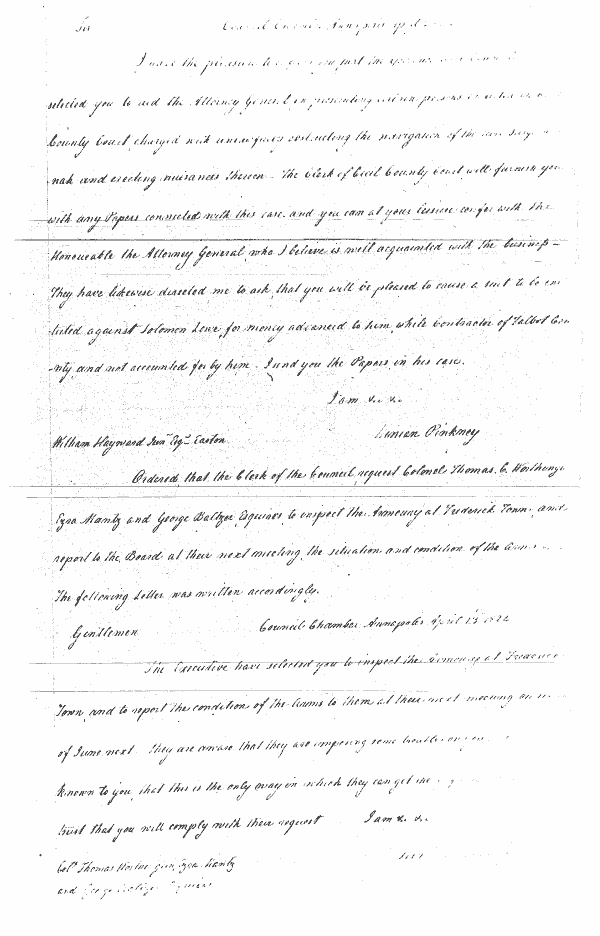 Sir Council Chamber Annapolis April
I have the pleasure to you that the
selected you to aid the Attorney General in prosecuting certain persons
County Court charged with unlawfully obstructing the navigation of the
nah and erecting nuisances thereon – The Clerk of Cecil County Court will furnish you
with any Papers connected with this case. and you can at your leisure confer with the
Honourable the Attorney General, who I believe is well acquainted with the business –
They have likewise directed me to ask, that you will be pleased to cause a suit to be ins
tituted against Solomon Lowe, for money advanced to him, while Contractor of Talbot Cou
nty and not accounted for by him. I send you the Papers in his case.
I am &c &c
William Hayward Junr Esqr Easton Ninian Pinkney
Ordered, that the Clerk of the Council, request Colonel Thomas. C. Worthington
Ezra Mantz and George Baltzer Esquires to inspect the Armoury at Frederick Town and
report to the Board at their next meeting the situation and condition of the Arms –
The following Letter was written accordingly.
Gentlemen Council Chamber Annapolis April 13 1822
The Executive have selected you to inspect the Armoury at Frederick
Town, and to report the condition of the Arms to them at their next meeting on
of June next. They are aware that they are imposing some trouble on you
known to you, that this is the only way in which they can get
trust that you will comply with their request I am &c &c
Colo Thomas Ezra Mantz
and George Baltzer Esquires